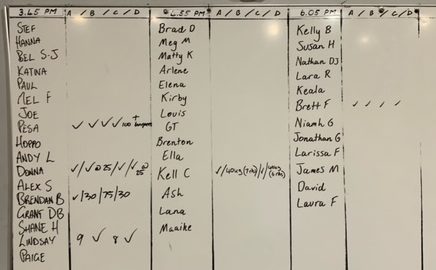 3.45 PM A / B / C / D 4.55 PM A / B / C / D 6.05 PM A / B / C / D
STEF Brad D Kelly B
HANNA Meg M Susan H
BEL S-J Matty K Nathan DJ
KATINA Arlene Lara R
PAUL Elena Keala
MEL F Kirby Brett F ✓ ✓ ✓ ✓
JOE Louis Niamh G
PESA ✓ ✓ ✓ ✓ 100 + GT Jonathan G
HOPPO Brenton Larissa F
ANDY L Ella James M
DONNA ✓/✓@25/✓/✓@25 Kell C David
ALEX S Ash Laura F
BRENDAN B ✓/30/75/30 Lana
GRANT DB Maaike
SHANE H
LINDSAY 9 ✓ 8 ✓
PAIGE